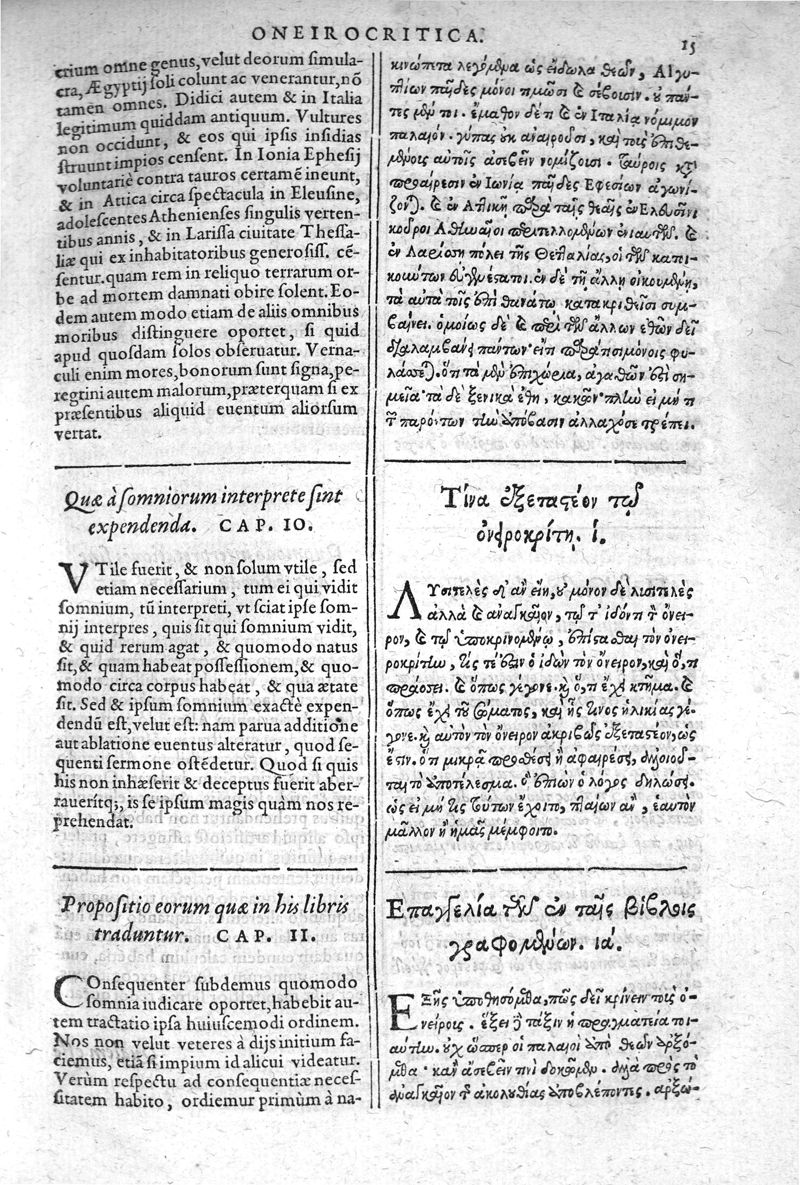 ONEIROCRITICA.
15
crium omne genus, velut deorum simula-
cra, Ægyptij soli colunt ac venerantur, nõ
tamen omnes. Didici autem & in Italia
legitimum quiddam antiquum. Vultures
non occidunt, & eos qui ipsis insidias
struunt impios censent. In Ionia Ephesij
voluntariè contra tauros certamẽ ineunt,
& in Attica circa spectacula in Eleusine,
adolescentes Athenienses singulis verten-
tibus annis, & in Larissa ciuitate Thessa-
liæ qui ex inhabitatoribus generosiss. cẽ-
sentur. quam rem in reliquo terrarum or-
be ad mortem damnati obire solent. Eo-
dem autem modo etiam de aliis omnibus
moribus distinguere oportet, si quid
apud quosdam solos obseruatur. Verna-
culi enim mores, bonorum sunt signa, pe-
regrini autem malorum, præterquam si ex
præsentibus aliquid euentum aliorsum
vertat.
Quæ à somniorum interprete sint
expendenda. CAP. IO.
VTile fuerit, & non solum vtile, sed
etiam necessarium, tum ei qui vidit
somnium, tũ interpreti, vt sciat ipse som-
nij interpres, quis sit qui somnium vidit,
& quid rerum agat, & quomodo natus
sit, & quam habeat possessionem, & quo-
modo circa corpus habeat, & qua ætate
sit. Sed & ipsum somnium exactè expen-
dendũ est, velut est: nam parua additione
aut ablatione euentus alteratur, quod se-
quenti sermone ostẽdetur. Quod si quis
his non inhæserit & deceptus fuerit aber-
raueritq;, is se ipsum magis quàm nos re-
prehendat.
Propositio eorum quæ in his libris
traduntur. CAP. II.
COnsequenter subdemus quomodo
somnia iudicare oportet, habebit au-
tem tractatio ipsa huiuscemodi ordinem.
Nos non velut veteres à dijs initium fa-
ciemus, etiã si impium id alicui videatur.
Verùm respectu ad consequentiæ neces-
sitatem habito, ordiemur primùm à na-
κινώπετα λεγόμενα ὡς εἴδωλα θεῶν, Αἰγυ-
πτίων παῖδες μόνοι τιμῶσι καὶ σέβουσιν. οὐ πάν-
τες μέν τοι. ἔμαθον δέ τι καὶ ἐν Ἰταλίᾳ νόμιμον
παλαιόν. γύπας οὐκ ἀναιροῦσι, καὶ τοὺς ἐπιθε-
μένοις αὐτοῖς ἀσεβεῖν νομίζουσι. ταύροις κατὰ
προαίρεσιν ἐν Ἰωνίᾳ παῖδες Ἐφεσίων ἀγωνί-
ζονται. καὶ ἐν Ἀττικῇ παρὰ ταῖς θεαῖς ἐν Ἐλευσῖνι
κοῦροι Ἀθηναῖοι περιτελλομένων ἐνιαυτῶν. καὶ
ἐν Λαρίσσῃ πόλει τῆς Θετταλίας, οἱ τῶν κατοι-
κούντων εὐγενέστατοι. ἐν δὲ τῇ ἄλλῃ οἰκουμένῃ,
τὰ αὐτὰ τοῖς ἐπὶ θανάτῳ κατακριθεῖσι συμ-
βαίνει. ὁμοίως δὲ καὶ περὶ τῶν ἄλλων ἐθῶν δεῖ
διαλαμβάνειν πάντων εἴ τι παρά τισι μόνοις φυ-
λάσσεται. ὅτι τὰ μὲν ἐπιχώρια, ἀγαθῶν ἐστι ση-
μεῖα τὰ δὲ ξενικὰ ἔθη, κακῶν. πλὴν εἰ μή τι
τῶν παρόντων τὴν ὑπόβασιν ἀλλαχόσε τρέπει.
Τίνα ἐξεταστέον τῷ
ὀνειροκρίτῃ. ι.
ΛΥσιτελὲς δ' ἂν εἴη, οὐ μόνον δὲ λυσιτελὲς
ἀλλὰ καὶ ἀναγκαῖον, τῷ τ' ἰδόντι τὸν ὄνει-
ρον, καὶ τῷ ὑποκρινομένῳ, ἐπίστασθαι τὸν ὀνει-
ροκρίτην, τίς τέ ἐστιν ὁ ἰδὼν τὸν ὄνειρον, καὶ ὅ, τι
πράσσει. καὶ ὅπως γέγονε. καὶ ὅ, τι ἔχει κτῆμα. καὶ
ὅπως ἔχει τοῦ σώματος, καὶ ἧς τινος ἡλικίας γέ-
γονε. καὶ αὐτὸν τὸν ὄνειρον ἀκριβῶς ἐξεταστέον, ὡς
ἔστιν. ὅτι μικρᾷ προσθέσει ἢ ἀφαιρέσει, ἀλλοιοῦ-
ται τὸ ἀποτέλεσμα. ὃ ἐπιὼν ὁ λόγος δηλώσει.
ὡς εἰ μή τις τούτων ἔχοιτο, πταίων ἂν, ἑαυτὸν
μᾶλλον ἢ ἡμᾶς μέμφοιτο.
Ἐπαγγελία τῶν ἐν ταῖς βίβλοις
γραφομένων. ια.
ΕΞῆς ὑποθησόμεθα, πῶς δεῖ κρίνειν τοὺς ὀ-
νείρους. ἕξει δὲ τάξιν ἡ πραγματεία τοι-
αύτην. οὐχ ὥσπερ οἱ παλαιοὶ ἀπὸ θεῶν ἀρξό-
μεθα. κἂν ἀσεβεῖν τινὶ δοκῶμεν. ἀλλὰ πρὸς τὸ
ἀναγκαῖον τῆς ἀκολουθίας ἀποβλέποντες. ἀρξώ-